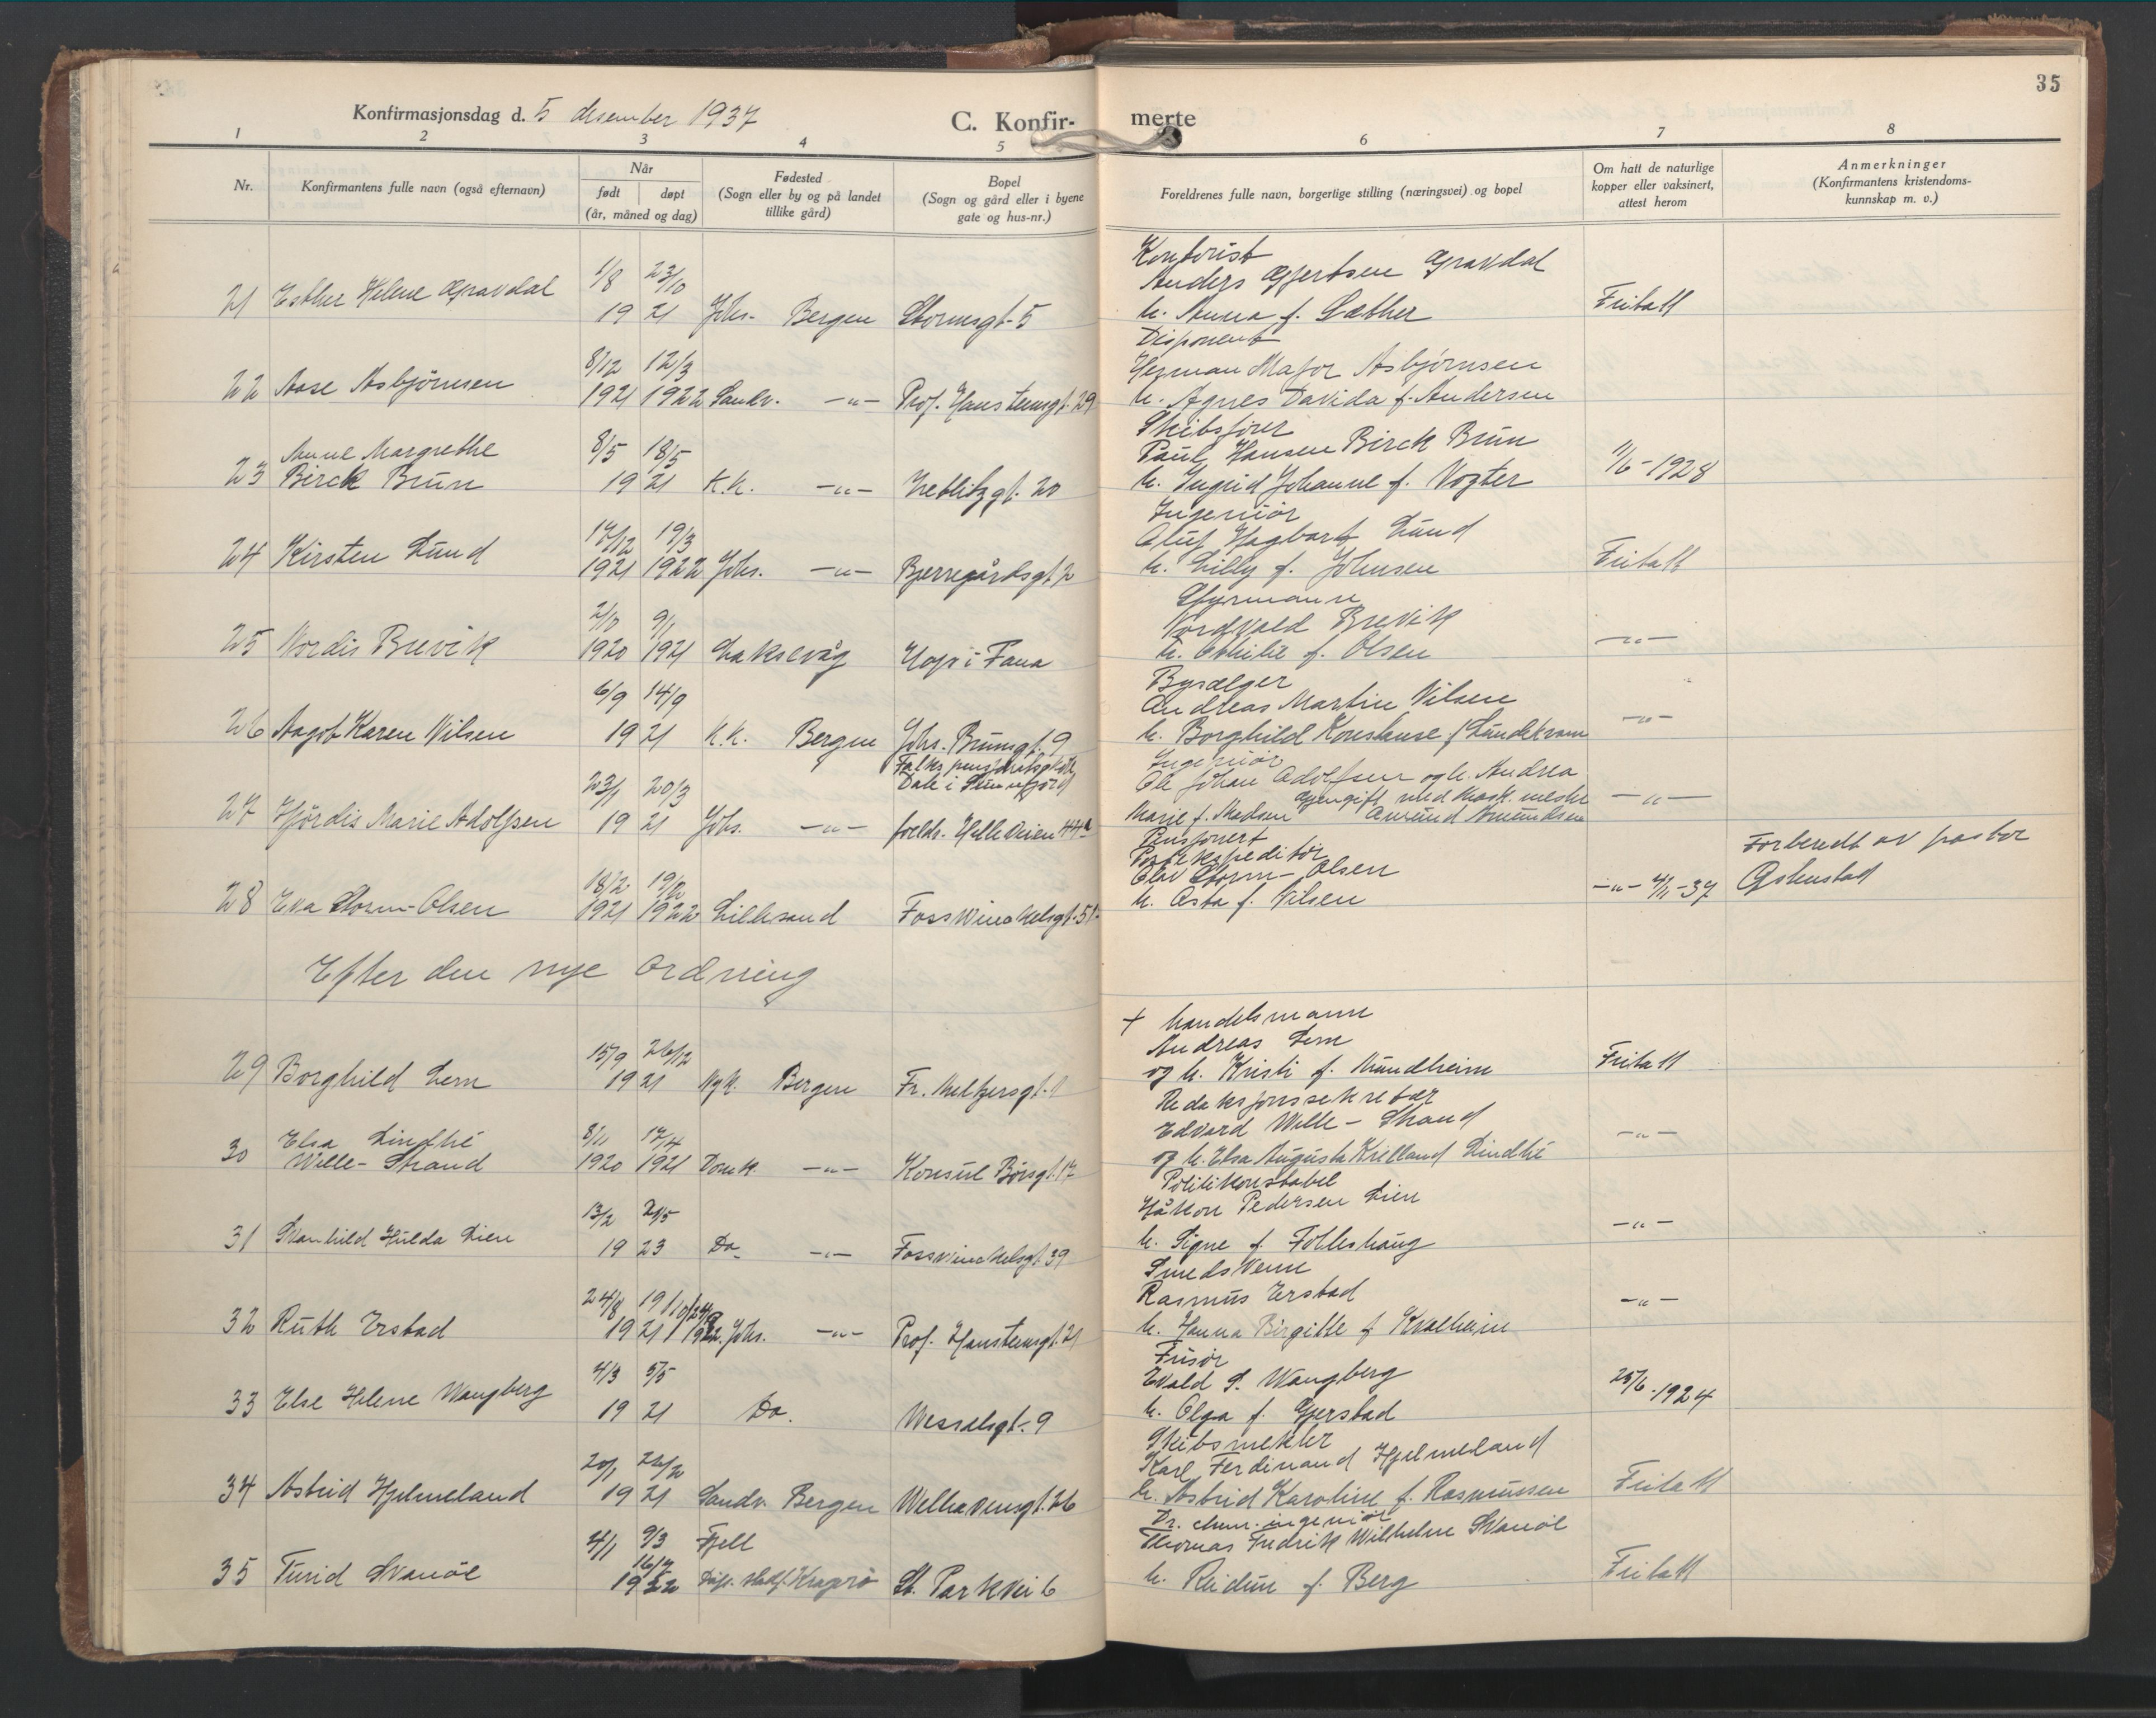 35
Konfirmasjonsdag d. 5 desember 1937
C. Konfir- merte
1 2 3 4 5 6 7 8
Nr.
Konfirmantens fulle navn (også efternavn)
Når
født døpt
(år, måned og dag)
Fødested
(Sogn eller by og på landet
tillike gård)
Bopel
(Sogn og gård eller i byene
gate og hus-nr.)
Foreldrenes fulle navn, borgerlige stilling (næringsvei) og bopel
Om hatt de naturlige
kopper eller vaksinert,
attest herom
Anmerkninger
(Konfirmantens kristendoms-
kunnskap m. v.)
Kontorist
1/8 23/10 Anders Gjertsen Gravdal
21 Esther Helene Gravdal 19 21 Johs. Bergen Stormsgt. 5 h. Anna f. Sæther Fritatt
Disponent
8/12 12/3 Herman Major Asbjørnsen
22 Aase Asbjørnsen 1921 1922 Sandv. -"- Prof. Hansteensgt. 29 h. Agnes Davida f. Andersen
Skibsfører
Anne Margrethe 8/5 18/5 Paul Hansen Birck Brun
23 Birck Brun 19 21 K.K. -"- Welblitzgt. 20 h. Ingrid Johanne f. Vogter 11/6-1928
Ingeniør
17/12 19/3 Oluf Hagbart Lund
24 Kirsten Lund 1921 1922 Johs. -"- Bjerregårdsgt. 2 h. Lilly f. Johnsen Fritatt
Styrmann
2/10 9/1 Nordvald Brevik
25 Nordis Brevik 1920 1921 Laksevåg Hop i Fana h. Othilie f. Olsen -"-
Byselger
6/9 14/9 Andreas Martin Nilsen
26 Aagot Karen Nilsen 19 21 K.K. Bergen Johs. Brunsgt. 9 h. Borghild Konstanse f. Lundekvam -"-
Dale i Sunnfjord
Ingeniør
23/1 20/3 Ole Johan Adolfsen og h. Andrea
27 Hjørdis Marie Adolfsen 19 21 Johs. -"- foreldr. Helleveien 44a Marie f. Madsen gjengift med mask. mester Amund Amundsen -"-
Pensjonert
Postekspeditør
18/12 19/2 Olav Storm-Olsen
28 Eva Storm-Olsen 1921 1922 Lillesand Fosswinckelsgt. 51 h. Asta f. Nilsen -"- 4/11-37
Forberedt av pastor
Gjknstad
Efter den nye ordning
+ handelsmann
15/9 26/12 Andreas Lem
29 Borghild Lem 19 21 Nyk. Bergen Fr. Meltzersgt. 1 og h. Kristi f. Mundheim Fritatt
Redaksjonssekretær
Elsa Lindhé 8/11 17/4 Edvard Welle-Strand
30 Welle-Strand 1920 1921 Domk. -"- Konsul Børsgt. 17 og h. Elsa Augusta Kielland Lindhé -"-
Politikonstabel
13/2 21/5 Håkon Pedersen Lien
31 Svanhild Hulda Lien 19 23 Do. -"- Fosswinckelsgt 39 h. Signe f. Folleshaug -"-
Smedsvenn
24/8 Rasmus Erstad
32 Ruth Erstad 19 21 Johs. -"- Prof. Hansteensgt. 21 h. Hanna Birgitte f Kvalheim -"-
Frisør
4/3 5/5 Evald S. Wangberg
33 Else Helene Wangberg 19 21 Do. Wesselsgt. 9 h. Olga f. Gjerstad 25/6-1924
Skibsmekler
20/1 26/2 Karl Ferdinand Hjelmeland
34 Astrid Hjelmeland 19 21 Sandv. Bergen Welhavensgt. 26 h. Astrid Karoline f. Rasmussen Fritatt
Dr. chem. ingeniør
4/1 9/3 Fjell Thomas Fredrik Wilhelm Svanøe
35 Turid Svanøe 19 22 Kragerø St. Parkvei 6 h. Reidun f. Berg Fritatt